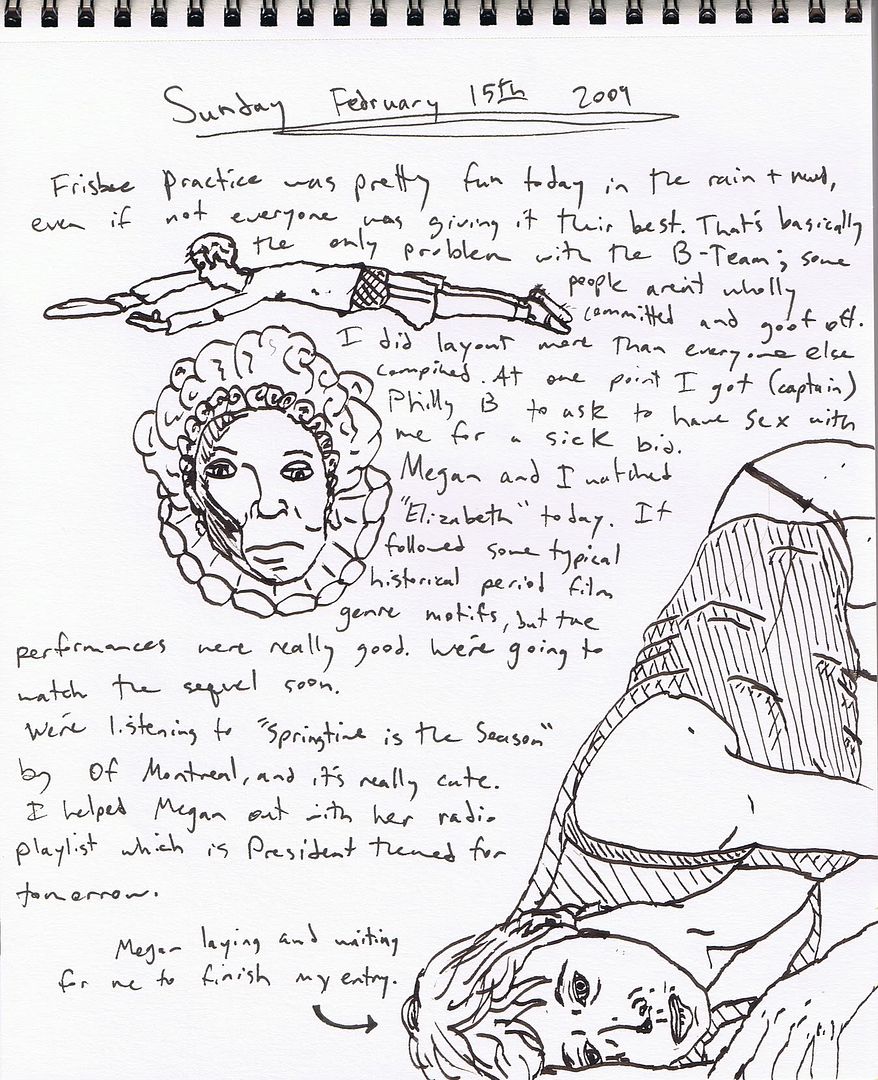 Sunday February 15th 2009
Frisbee practice was pretty fun today in the rain + mud,
even if not everyone was giving it their best. That's basically
the only problem with the B-Team; some
people aren't wholly
committed and goof off.
I did layout more than everyone else
compined. At one point I got (captain)
Philly B to ask to have sex with
me for a sick bid.
Megan and I watched
"Elizabeth" today. It
followed some typical
historical period film
genre motifs, but the
performances were really good. We're going to
watch the sequel soon.
We're listening to "Springtime is the Season"
by Of Montreal, and it's really cute.
I helped Megan out with her radio
playlist which is President themed for
tomorrow.
Megan laying and waiting
for me to finish my entry.